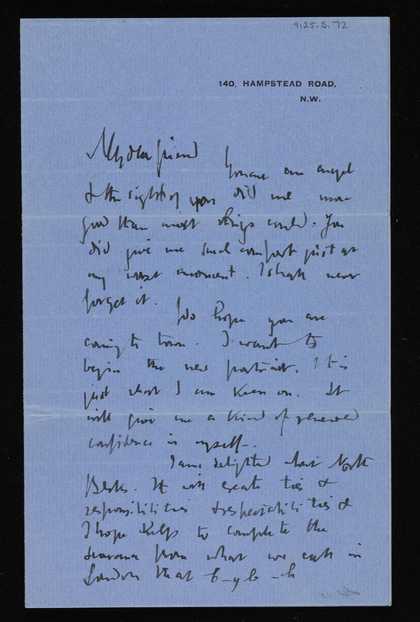 9125.5.72
140, HAMPSTEAD ROAD,
N.W.
My dear friend You are an angel
& the sight of you did me more
good than most things could. You
did give me such comfort just at
my worst moment. I shall never
forget it.
I do hope you are
coming to town. I want to
begin the new portrait. It is
just what I am keen on. It
will give me a kind of renewed
confidence in myself.
I am delighted about North
Berks. It will create ties &
responsibilities & respectabilities &
I hope help to complete the
from what we call in
London that